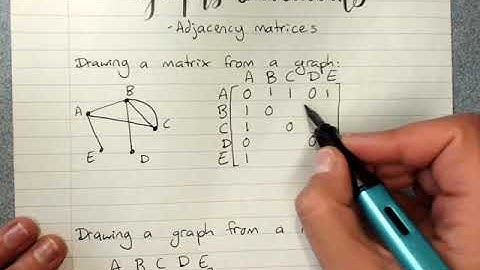 - Adjacency matrices
Drawing a matrix from a graph:
A B C D E
A 0 1 1 0 1
B 1 0
C 1 0
D 0 0
E 1
B
A
C
E D
Drawing a graph from a
A B C D E